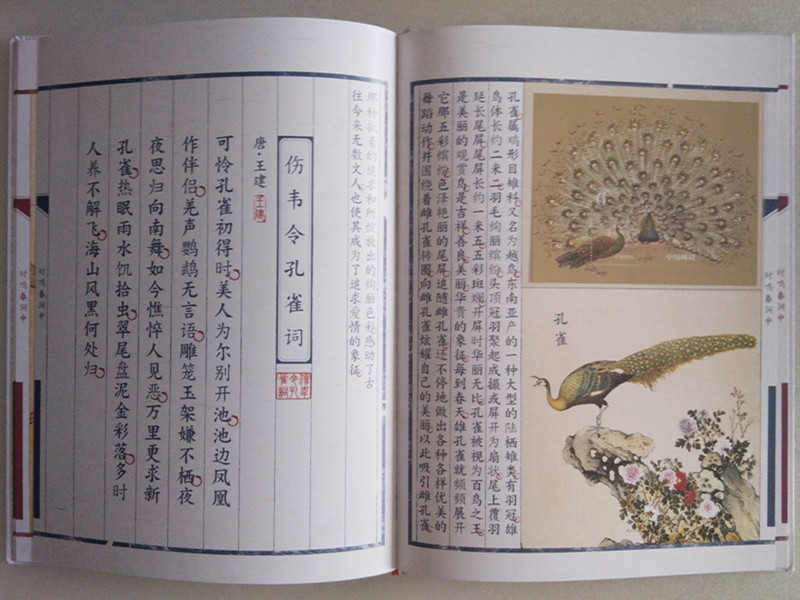 孔雀属鸡形目雉科又名为越鸟东南亚产的一种大型的陆栖雉类有羽冠雄
鸟体长约二米二羽毛绚丽缤纷头顶冠羽聚起成撮或屏开为扇状尾上覆羽
延长尾屏尾屏长约一米五五彩斑斓开屏时华丽无比孔雀被视为百鸟之王
是美丽的观赏鸟是吉祥善良美丽华贵的象征每到春天雄孔雀就频频展开
它那五彩缤纷色泽艳丽的尾屏追随雌孔雀还不停地做出各种各样优美的
舞蹈动作并围绕着雌孔雀转圈向雌孔雀炫耀自己的美丽以此吸引雌孔雀
孔雀
那种执着的追求和所绽放出的绚丽色彩感动了古
往今来无数文人也使其成为了追求爱情的象征
伤韦令孔雀词
唐·王建
可怜孔雀初得时美人为尔别开池池边凤凰
作伴侣羌声鹦鹉无言语雕笼玉架嫌不栖夜
夜思归向南舞如今憔悴人见恶万里更求新
孔雀热眠雨水饥拾虫翠尾盘泥金彩落多时
人养不解飞海山风黑何处归
时鸣春涧中
时鸣春涧中
时鸣春涧中